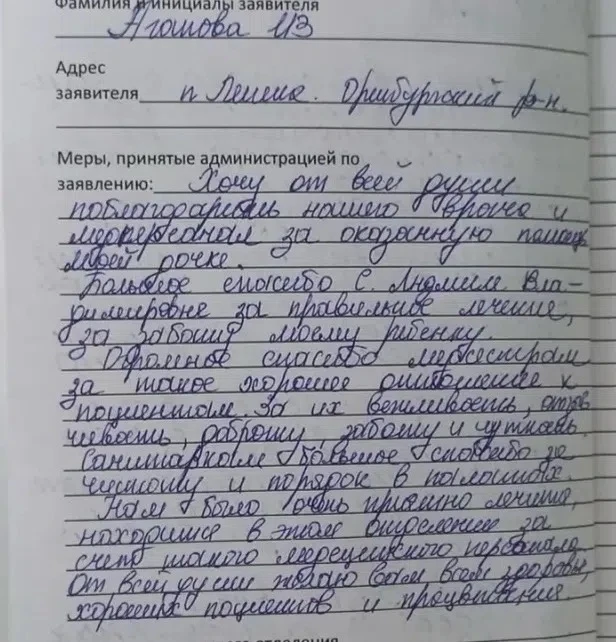 Фамилия и инициалы заявителя
Агошова ИЗ
Адрес
заявителя п Ленина. Оренбургский р-н.
Меры, принятые администрацией по
заявлению: Хочу от всей души
поблагодарить нашего врача и
медперсонал за оказанную помощь
моей дочке.
Большое спасибо С. Людмиле Вла-
димировне за правильное лечение,
за заботу моему ребенку.
Огромное спасибо медсестрам
за такое хорошее отношение к
пациентам. За их вежливость, отзыв
чивость, доброту, заботу и чуткость.
Санитаркам большое спасибо за
чистоту и порядок в палатах.
Нам было очень приятно лечится,
находится в этом отделение за
счет такого медецинского персонала
От всей души желаю вам всем здоровья,
хороших пациентов и процветания